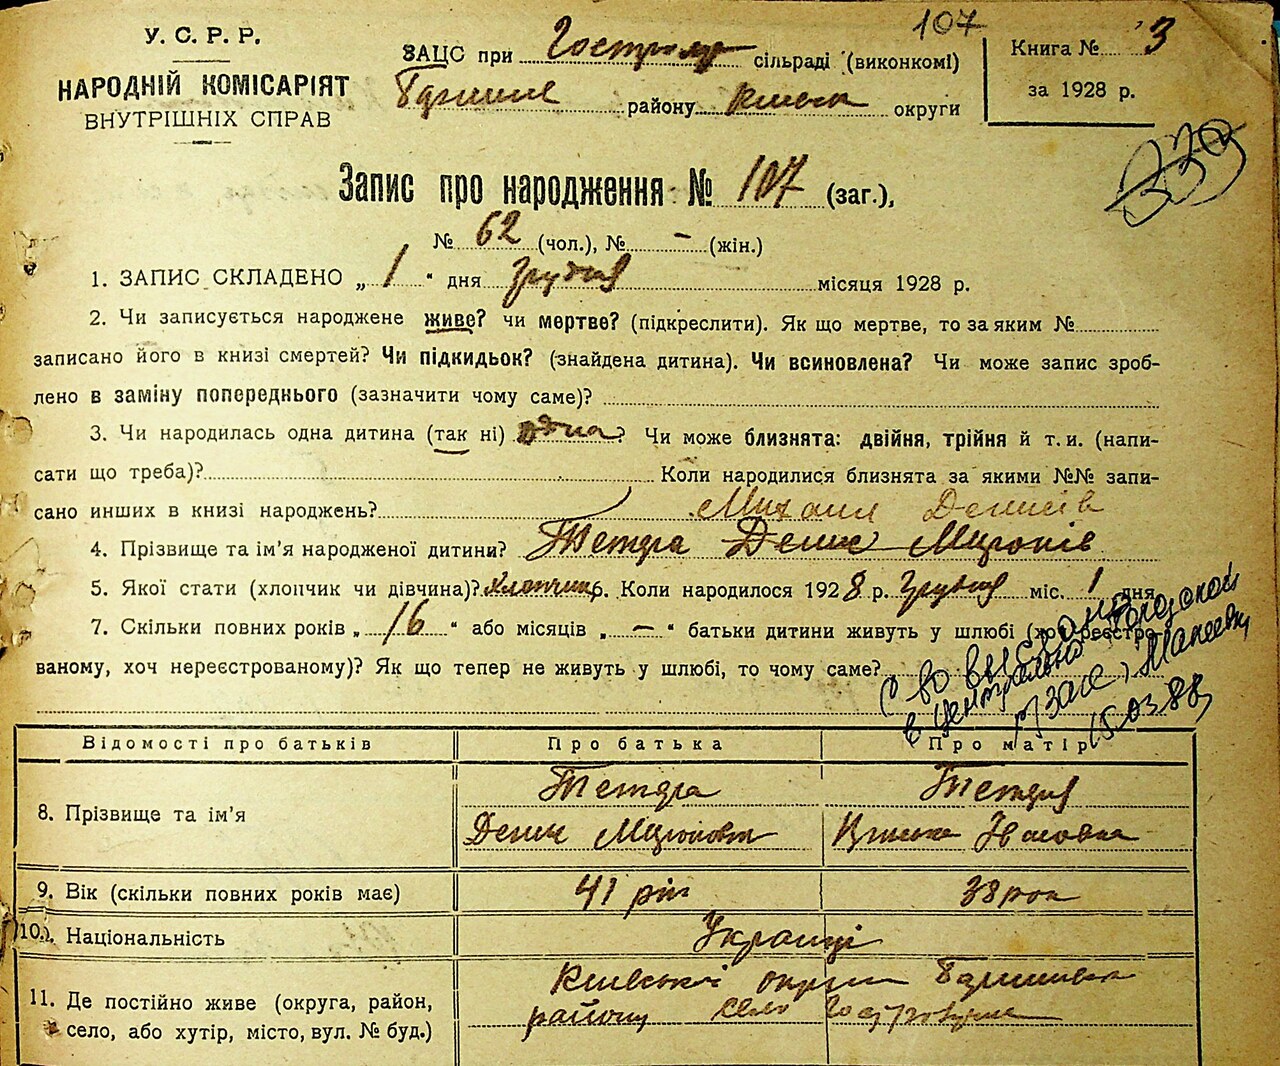 107
У. С. Р. Р.
НАРОДНІЙ КОМІСАРІЯТ
ВНУТРІШНІХ СПРАВ
ЗАЦС при сільраді (виконкомі)
району округи
Книга № 3
за 1928 р.
339
Запис про народження № 107 (заг.),
№ 62 (чол.), № - (жін.)
1. ЗАПИС СКЛАДЕНО „ 1 " дня Грудня місяця 1928 р.
2. Чи записується народжене живе? чи мертве? (підкреслити). Як що мертве, то за яким №
записано його в книзі смертей? Чи підкидьок? (знайдена дитина). Чи всиновлена? Чи може запис зроб-
лено в заміну попереднього (зазначити чому саме)?
3. Чи народилась одна дитина (так ні) одна? Чи може близнята: двійня, трійня й т. и. (напи-
сати що треба)? Коли народилися близнята за якими №№ запи-
сано инших в книзі народжень? Михаил Денисів
4. Прізвище та ім'я народженої дитини? Тетера Денис Миронів
5. Якої стати (хлопчик чи дівчина)? хлопчик 6. Коли народилося 1928 р. Грудня міс. 1 дня
7. Скільки повних років „ 16 " або місяців „ — " батьки дитини живуть у шлюбі (хоч реєстро-
ваному, хоч нереєстрованому)? Як що тепер не живуть у шлюбі, то чому саме?
С-во выслано
в Центрально Городской
р/загс г, Макеевки
15.03.88
Відомості про батьків Про батька Про матір
8. Прізвище та ім'я
Тетера Тетеря
Денис Миронович Івановна
9. Вік (скільки повних років має) 41 рік 38 рок
10. Національність Українці
11. Де постійно живе (округа, район,
село, або хутір, місто, вул. № буд.)
Київської округи
району село